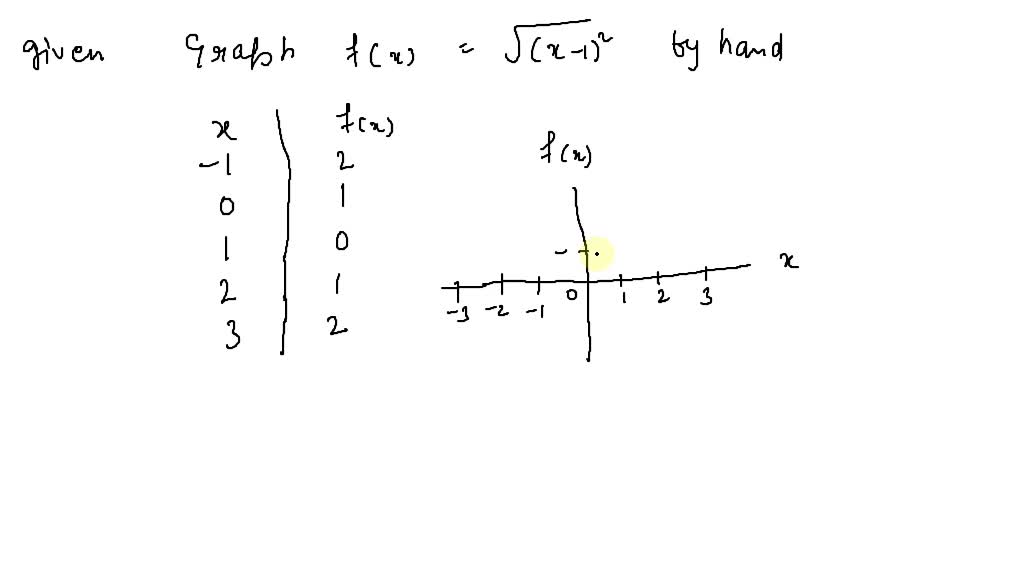 given Graph f(x) = √(x-1)² by hand
x f(x)
-1 2
0 1
1 0
2 1
3 2
f(x)
x
-3 -2 -1 0 1 2 3